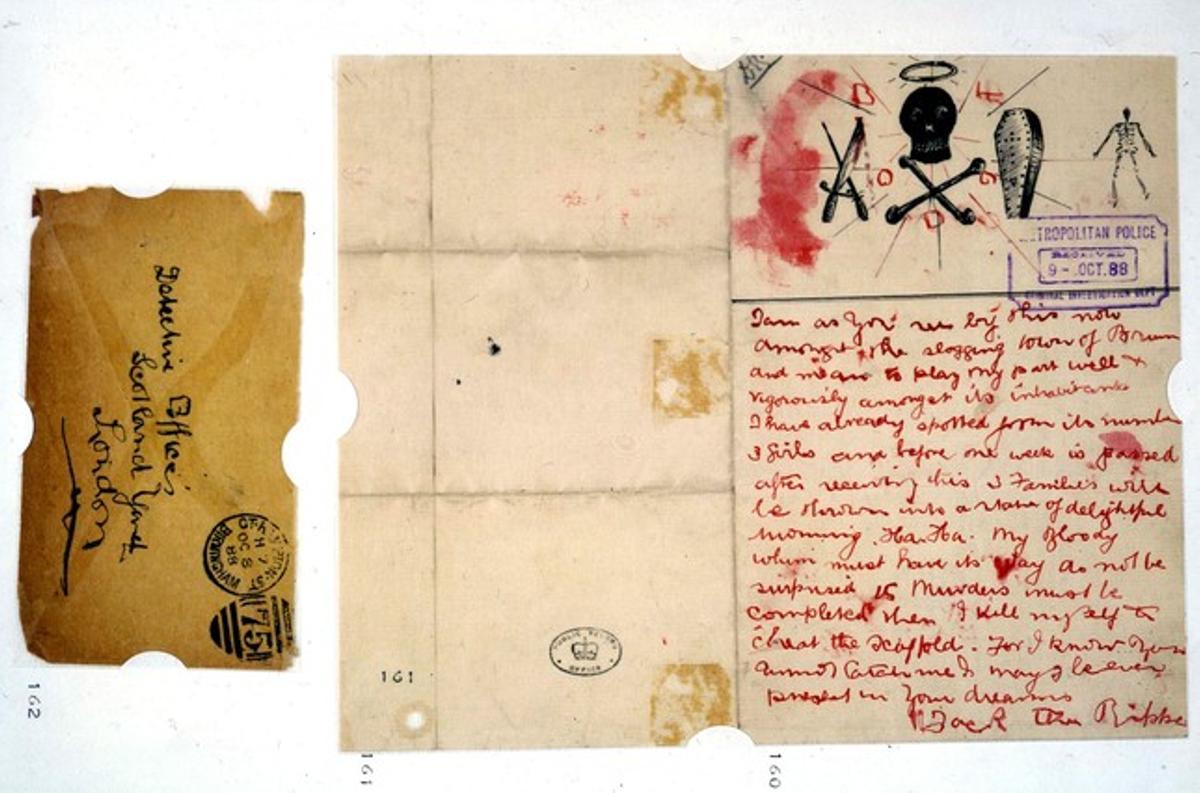 Detective Offices
Scotland Yard
London
BIRMINGHAM
OC 8
88
75
162
161
PUBLIC RECORD
OFFICE
161
METROPOLITAN POLICE
RECEIVED
9-OCT.88
CRIMINAL INVESTIGATION DEPT
I am as you see by this now
amongst the slogging town of
and mean to play my part well &
vigorously amongst its inhabitants
I have already spotted from its number
3 Girls and before one week is passed
after receiving this 3 Families will
be thrown into a state of delightful
mourning. Ha. Ha. My Bloody
whim must have its way do not be
surprised 15 Murders must be
completed then I kill myself to
cheat the scaffold. For I know you
cannot catch me & may I be even
present in your dreams
Jack the Rippe
160